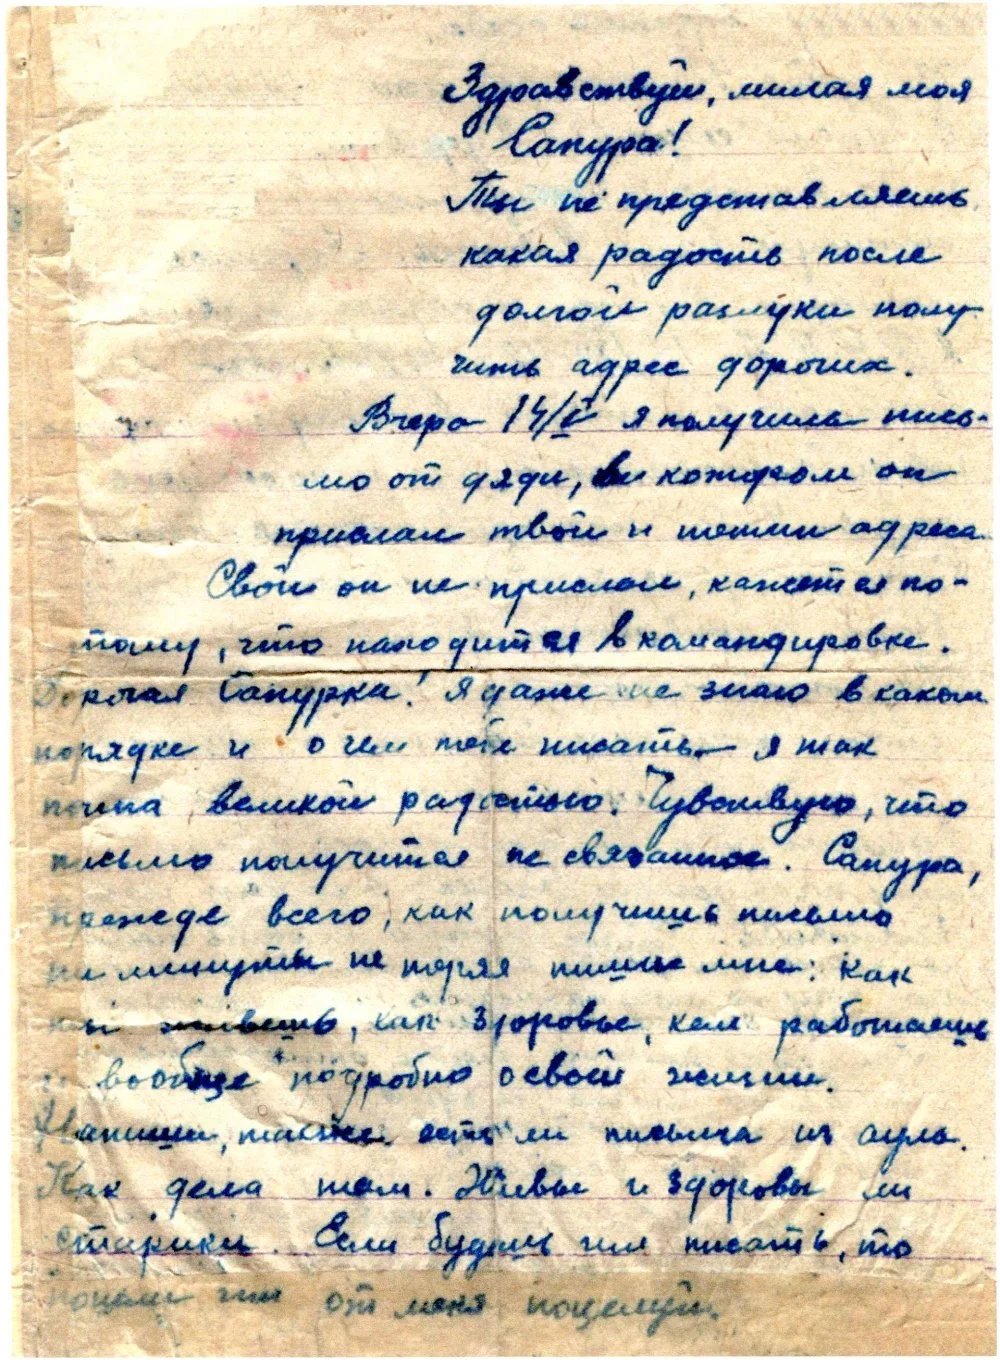 Здравствуй, милая моя
Сапура!
Ты не представляешь
какая радость после
долгой разлуки полу-
чить адрес дорогих.
Вчера 14/V я получила пись-
мо от дяди, в котором он
прислал твой и тётин адреса.
Свой он не прислал, кажется по-
тому, что находится в командировке.
Дорогая Сапурка! Я даже не знаю в каком
порядке и о чем тебе писать. я так
полна великой радостью. Чувствую, что
письмо получится не связанное. Сапура,
прежде всего, как получишь письмо
ни минуты не теряя пиши мне: как
ты живешь, как здоровье, кем работаешь
и вообще подробно о своей жизни.
Напиши, также есть ли письма из аула.
Как дела там. Живы и здоровы ли
старики. Если будешь им писать, то
им от меня поцелуй.